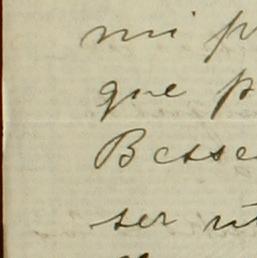 mi p
que p
Besse
ser út